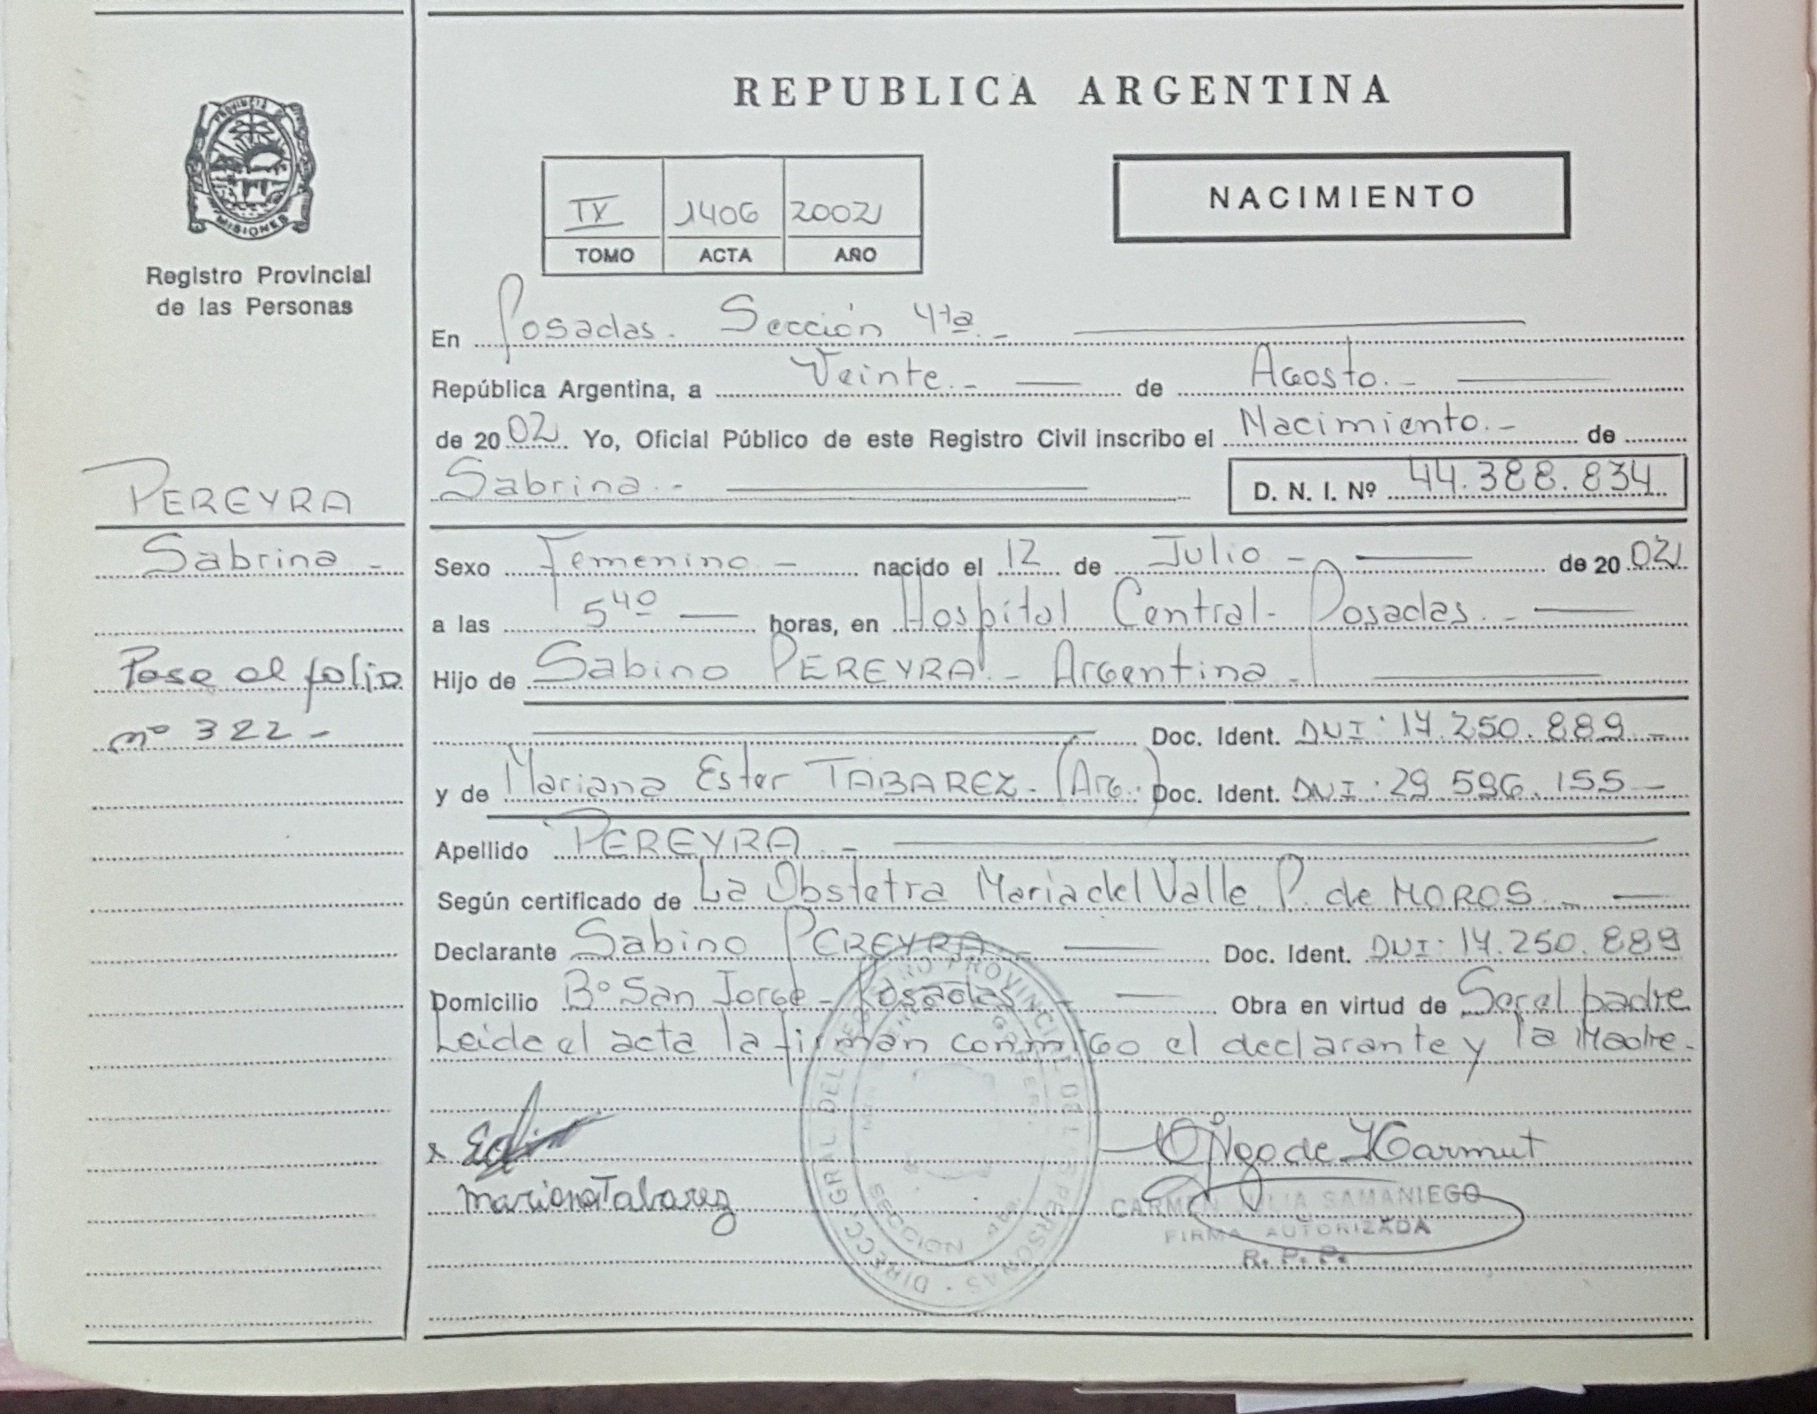 REPUBLICA ARGENTINA
PROVINCIA DE
MISIONES
Registro Provincial
de las Personas
IV 1406 2002
TOMO ACTA AÑO
NACIMIENTO
En Posadas. Sección 4ta.-
República Argentina, a Veinte.- de Agosto.-
de 2002. Yo, Oficial Público de este Registro Civil inscribo el Nacimiento.- de
Sabrina.- D. N. I. Nº 44.388.834
PEREYRA
Sabrina-
Pase al folio
nº 322-
Sexo Femenino- nacido el 12 de Julio- de 2002
a las 5⁴⁰ horas, en Hospital Central- Posadas.-
Hijo de Sabino PEREYRA.- Argentina-
Doc. Ident. DNI: 17.250.889-
y de Mariana Ester TABAREZ-(Arg.) Doc. Ident. DNI: 29 596.155-
Apellido PEREYRA.-
Según certificado de La Obstetra Maria del Valle P. de MOROS.-
Declarante Sabino PEREYRA- Doc. Ident. DNI: 17.250.889
Domicilio Bº San Jorge- Posadas- Obra en virtud de Ser el padre
Leide el acta la firman conmigo el declarante y la Madre.
Mariana Tabarez
CARMEN SAMANIEGO
FIRMA AUTORIZADA
R. P. P.
DIRECC. GRAL. DEL REGISTRO PROVINCIAL DE LAS PERSONAS
SECCION 4ta.